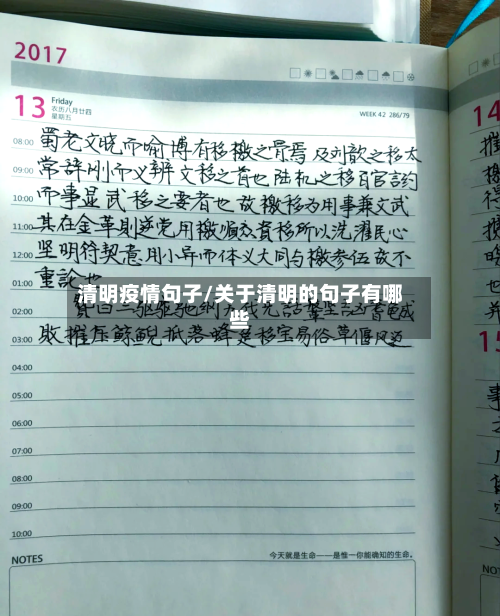 2017
13 Friday
农历八月廿四
星期五
WEEK 42 286/79
14
08:00 蜀老文晓而喻博有移檄之骨焉及刘歆之移太
09:00 常辞刚而义辨文移之首也陆机之移百官言约
10:00 而事显武移之要者也故檄移为用事兼文武
11:00 其在金革则逆党用檄顺众资移所以洗濯民心
12:00 坚明符契意用小异而体义大同与檄参伍故不
01:00 重论也
清明疫情句子/关于清明的句子有哪
些
02:00 赞曰三驱弛刚
03:00 败摧压鲸鲵抵落蜂虿移宝易俗草偃风迈
04:00
05:00
06:00
07:00
08:00
09:00
10:00
NOTES
今天就是生命——是惟一你能确知的生命。
15
NO